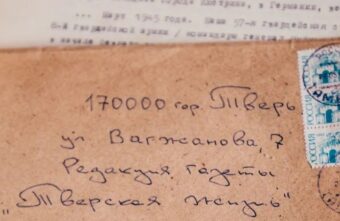 города Кюстрина, в Германии,
... Март 1945 года. Наша 57-я гвардейская
8-й гвардейской армии / командарм генерал
170000 гор. Тверь
ул Вагжанова, 7
Редакция газеты
"Тверская Жизнь"
РОССИЯ
РОССИЯ
РОССИЯ